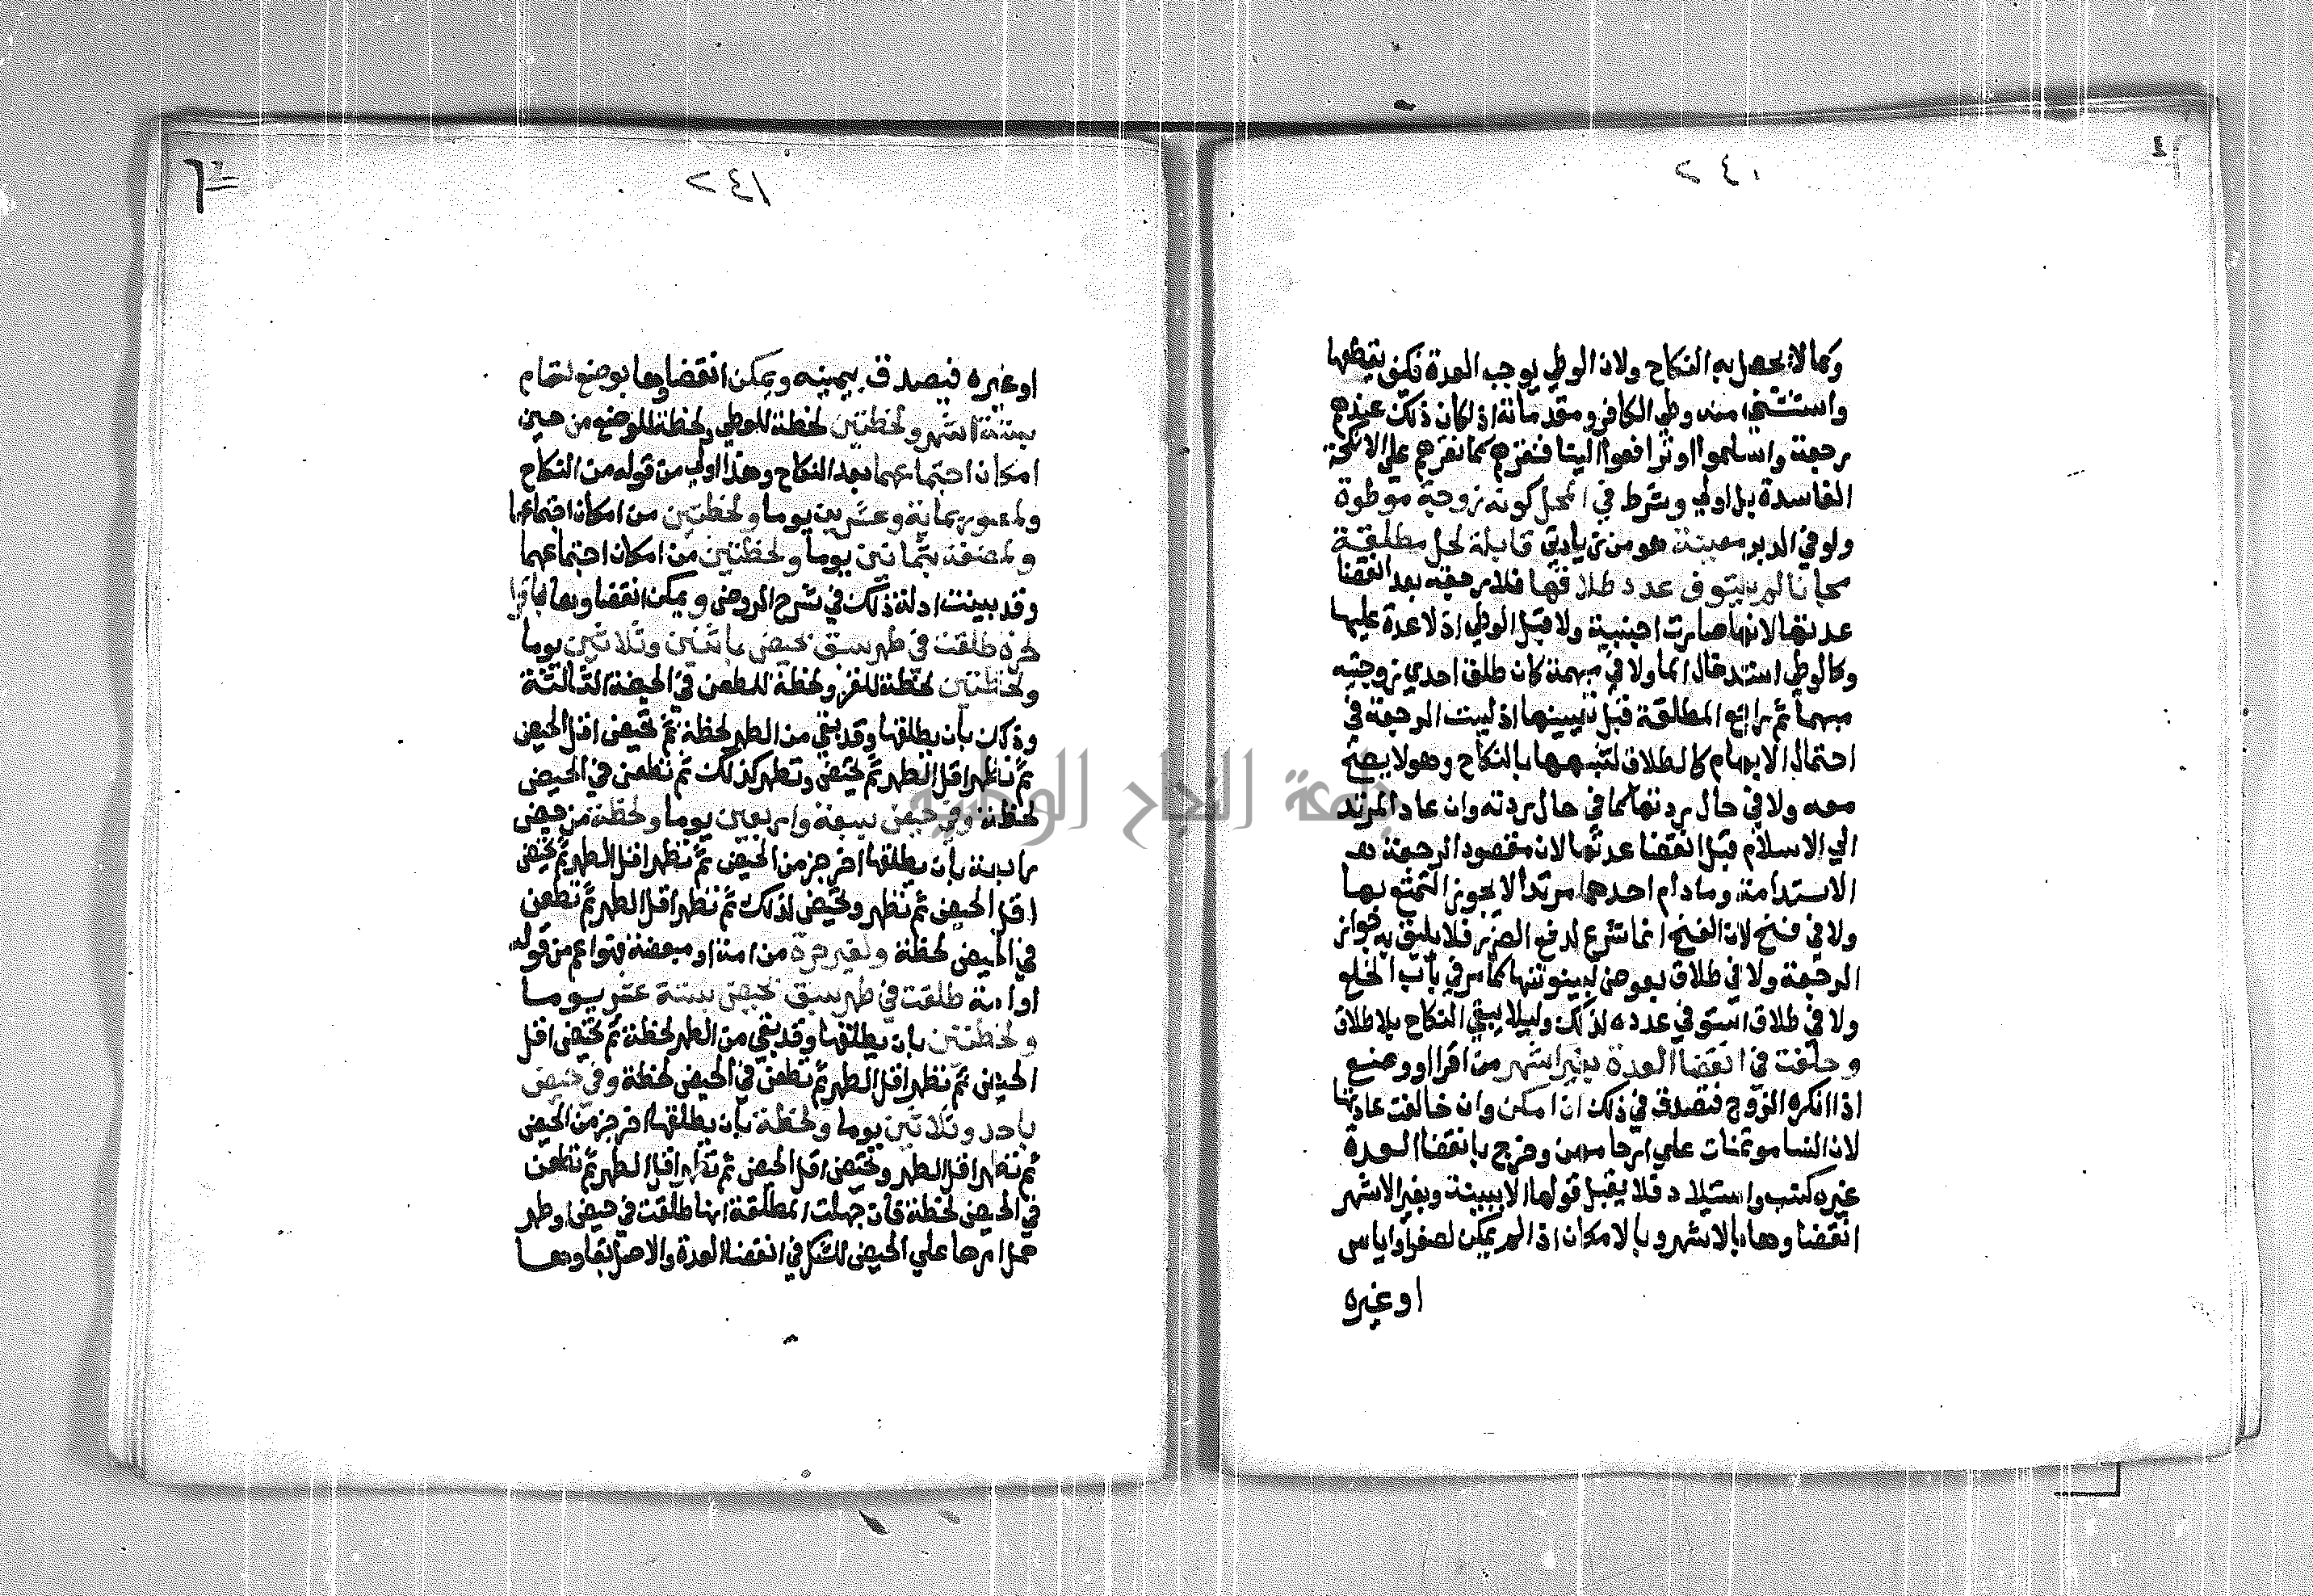 ١٤٢
وكما لا يحصل به النكاح ولان الوطي يوجب العدة فكيف يقطعها
واستثني منه وطي الكافر ومقدماته اذا كان ذلك عندهم
رجعة واسلموا او ترافعوا الينا فنقرهم كما نقرهم علي الانكحة
الفاسدة بل اولي وشرط في المحل كونه زوجة موطوة
ولو في الدبر معينة هو من زيادتي قابلة لحل مطلقة
مجانا لم يستوف عدد طلاقها فلا رجعة بعد انقضا
عدتها لانها صارت اجنبية ولا قبل الوطي اذ لا عدة عليها
وكالوطي استدخال الما ولا في مبهمة كان طلق احدي زوجتيه
مبهما ثم راجع المطلقة قبل تعيينها اذ ليست الرجعة في
احتمال الابهام كالطلاق لشبهها بالنكاح وهو لا يصح
معه ولا في حال ردتها كما في حال ردته وان عاد المرتد
الي الاسلام قبل انقضا عدتها لان مقصود الرجعة
الاستدامة وما دام احدهما مرتدا لا يجوز التمتع بها
ولا في فسخ لان الفسخ انما شرع لدفع الضرر فلا يليق به جواز
الرجعة ولا في طلاق بعوض لبينونتها كما مر في باب الخلع
ولا في طلاق استوفي عدده لذلك وليلا يبقي النكاح بلا طلاق
وحلفت في انقضا العدة بغير اشهر من اقرا او وضع
اذا انكره الزوج فتصدق في ذلك ان امكن وان خالفت عادتها
لان النسا موتمنات علي ارحامهن وخرج بانقضا العدة
غيره كنسب واستيلاد فلا يقبل قولها الا ببينة وبغير الاشهر
انقضاوها بالاشهر وبالامكان اذا لم يمكن لصغر او اياس
او غيره
١٤٢
او غيره فيصدق بيمينه ويمكن انقضاوها بوضع لتمام
بستة اشهر ولحظتين لحظة للوطي ولحظة للوضع من حين
امكان اجتماعهما بعد النكاح وهذا اولي من قوله من النكاح
ولمصور بماية وعشرين يوما ولحظتين من امكان اجتماعهما
ولمضغة بثمانين يوما ولحظتين من امكان اجتماعهما
وقد بينت ادلة ذلك في شرح الروض ويمكن انقضاوها باقرا
لحرة طلقت في طهر سبق بحيض باثنين وثلاثين يوما
ولحظتين لحظة للقرء ولحظة للطعن في الحيضة الثالثة
وذلك بان يطلقها وقد بقي من الطهر لحظة ثم تحيض اقل الحيض
ثم تطهر اقل الطهر ثم تحيض وتطهر كذلك ثم تطعن في الحيض
لحظة وفي حيض بسبعة واربعين يوما ولحظة من حيض
رابعة بان يطلقها اخر جزء من الحيض ثم تطهر اقل الطهر ثم تحيض
اقل الحيض ثم تطهر وتحيض كذلك ثم تطهر اقل الطهر ثم تطعن
في الحيض لحظة ولغير حرة من امة او مبعضة فهو اعم من قوله
او امة طلقت في طهر سبق بحيض بستة عشر يوما
ولحظتين بان يطلقها وقد بقي من الطهر لحظة ثم تحيض اقل
الحيض ثم تطهر اقل الطهر ثم تطعن في الحيض لحظة وفي حيض
باحد وثلاثين يوما ولحظة بان يطلقها اخر جزء من الحيض
ثم تطهر اقل الطهر وتحيض اقل الحيض ثم تطهر اقل الطهر ثم تطعن
في الحيض لحظة فان جهلت المطلقة انها طلقت في حيض او طهر
حمل امرها علي الحيض للشك في انقضا العدة والاصل بقاوها
جامعة النجاح الوطنية